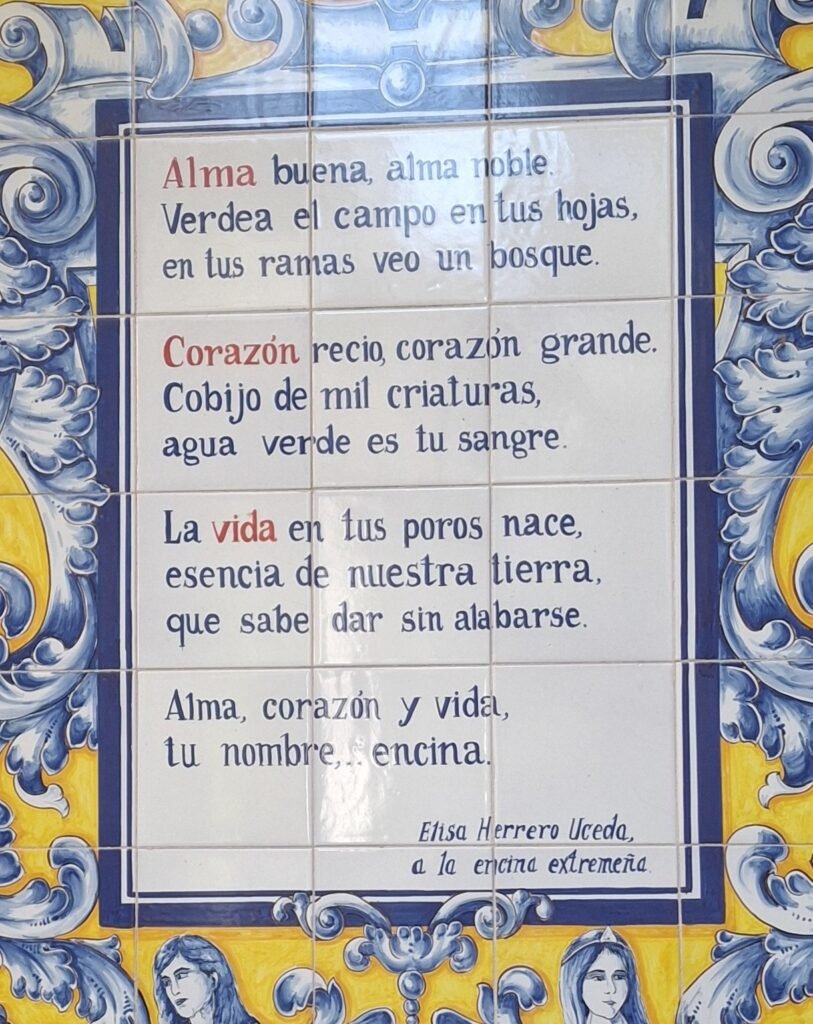 Alma buena, alma noble.
Verdea el campo en tus hojas,
en tus ramas veo un bosque.
Corazón recio, corazón grande.
Cobijo de mil criaturas,
agua verde es tu sangre.
La vida en tus poros nace,
esencia de nuestra tierra,
que sabe dar sin alabarse.
Alma, corazón y vida,
tu nombre,.. encina.
Elisa Herrero Uceda,
a la encina extremeña.